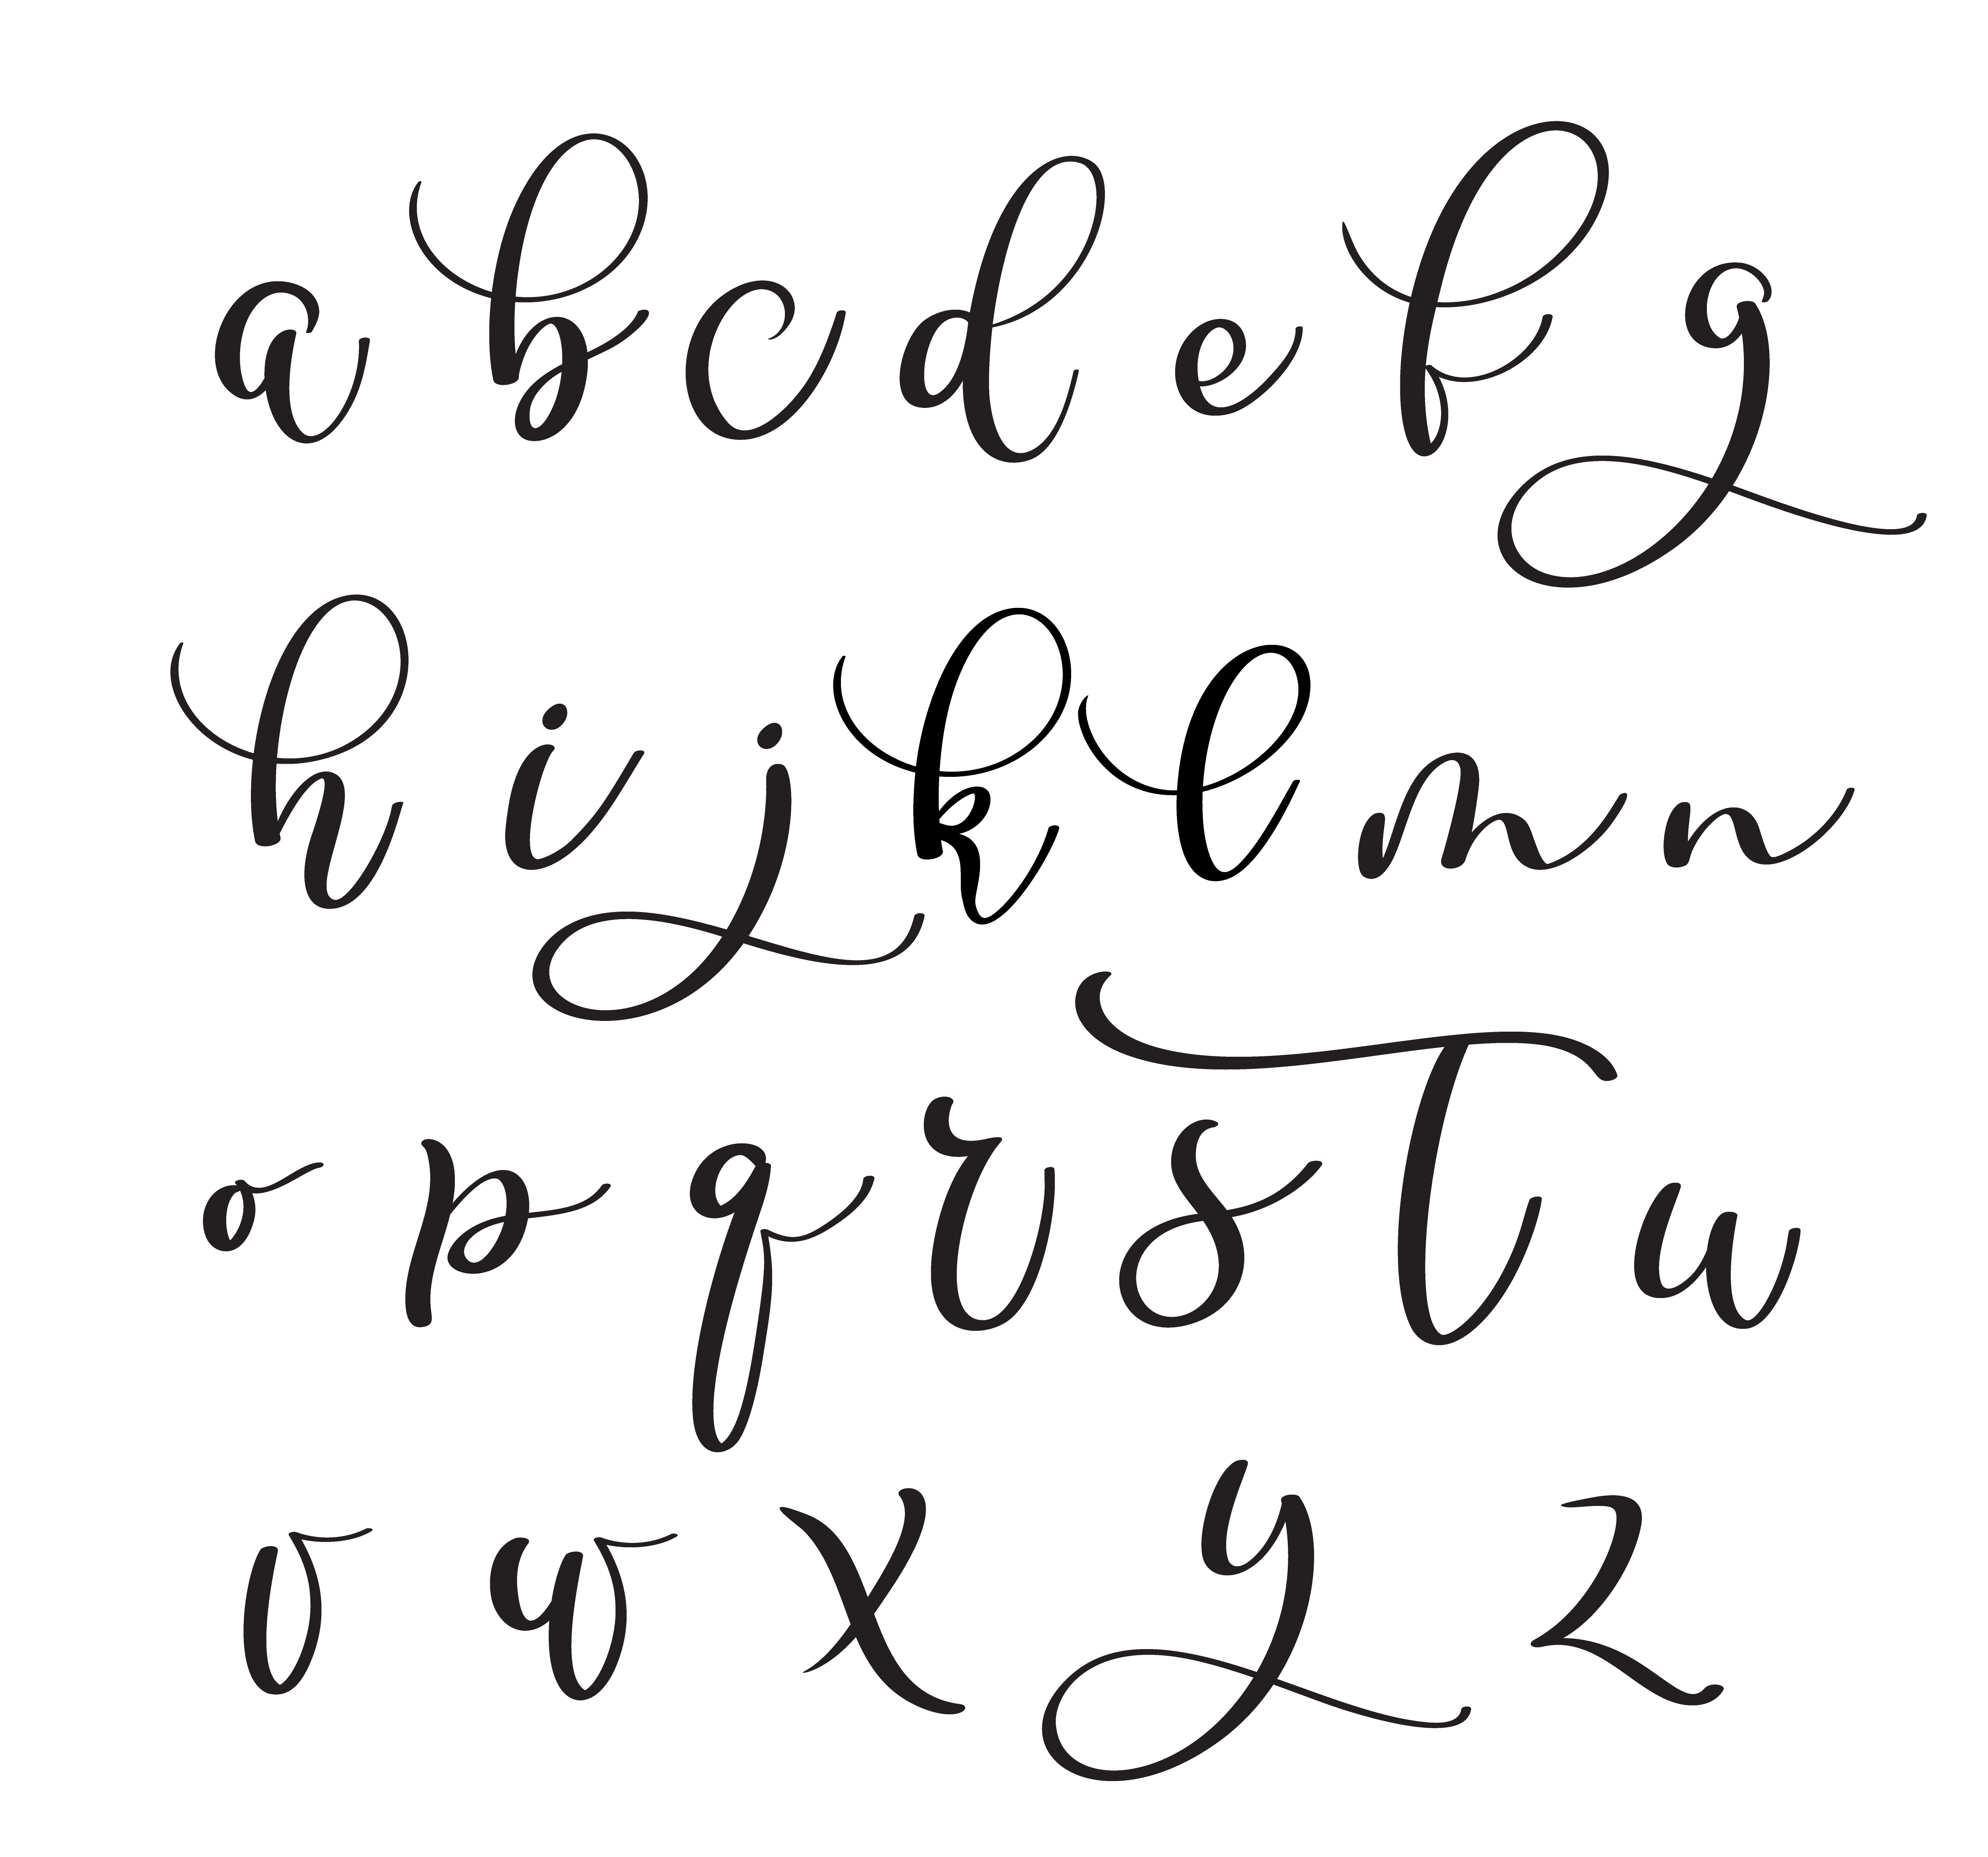 a b c d e f g
h i j k l m n
o p q r s T u
v w x y z